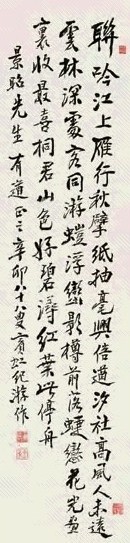 聯吟江上雁行秋擘紙抽毫興倍遒汐社高風人未遠
雲林深處客同游螘浮巒影樽前落蜨戀花光畫
裏收最喜桐君山色好碧潯紅葉此停舟
景昭先生有道正之辛卯八十八叟賓虹紀游作